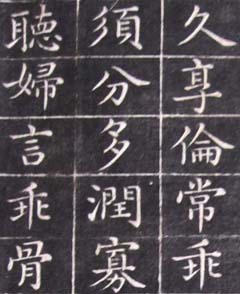 久享倫常乖
須分多潤寡
聽婦言乖骨